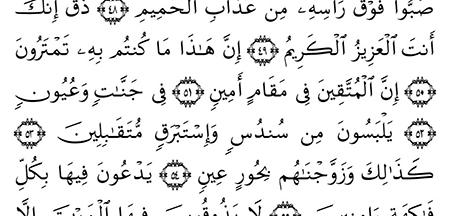 صُبُّوا۟ فَوْقَ رَأْسِهِۦ مِنْ عَذَابِ ٱلْحَمِيمِ ﴿٤٨﴾ ذُقْ إِنَّكَ
أَنتَ ٱلْعَزِيزُ ٱلْكَرِيمُ ﴿٤٩﴾ إِنَّ هَـٰذَا مَا كُنتُم بِهِۦ تَمْتَرُونَ
﴿٥٠﴾ إِنَّ ٱلْمُتَّقِينَ فِى مَقَامٍ أَمِينٍ ﴿٥١﴾ فِى جَنَّـٰتٍ وَعُيُونٍ
﴿٥٢﴾ يَلْبَسُونَ مِن سُندُسٍ وَإِسْتَبْرَقٍ مُّتَقَـٰبِلِينَ ﴿٥٣﴾
كَذَٰلِكَ وَزَوَّجْنَـٰهُم بِحُورٍ عِينٍ ﴿٥٤﴾ يَدْعُونَ فِيهَا بِكُلِّ